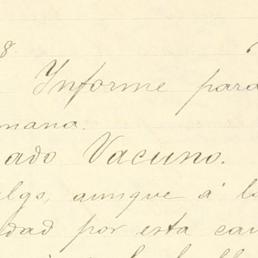 8.
Informe para
mana.
ado Vacuno.
algo, aunque á la
dad por esta cau